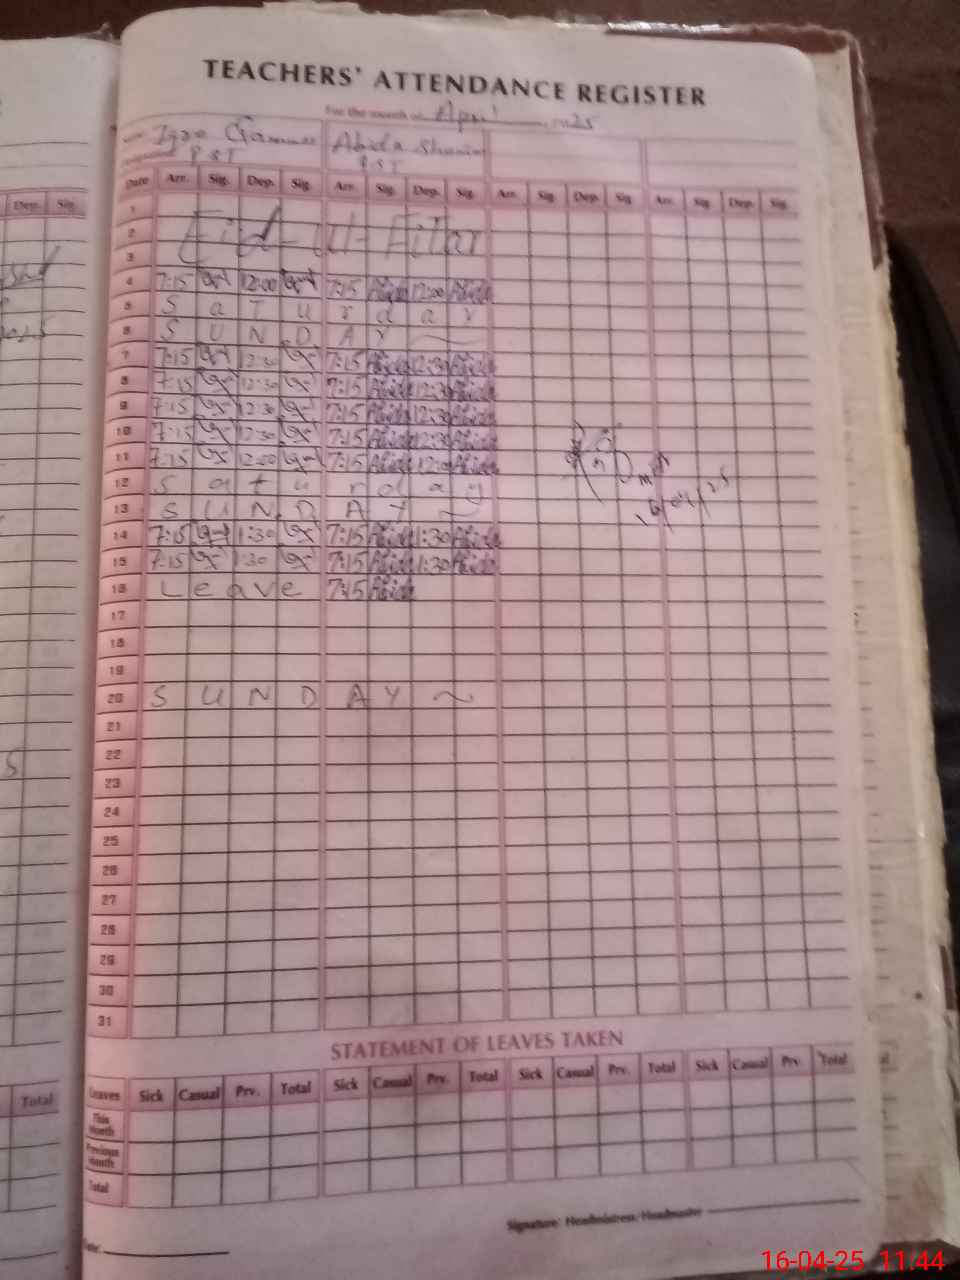 TEACHERS' ATTENDANCE REGISTER
For the month of April 2025
Name Iqra Abida Shamim
Designation P.S.T P.S.T
Date Arr. Sig. Dep. Sig. Arr. Sig. Dep. Sig. Arr. Sig. Dep. Sig. Arr. Sig. Dep. Sig.
1
2 Eid-Ul-Fitar
3
4 7:15 12:00 7:15 Abida 12:00 Abida
5 S a T u r d a y
6 S U N D A Y ~
7 7:15 12:30 7:15 Abida 12:30 Abida
8 7:15 12:30 7:15 Abida 12:30 Abida
9 7:15 12:30 7:15 Abida 12:30 Abida
10 7:15 12:30 7:15 Abida 12:30 Abida
11 7:15 12:00 7:15 Abida 12:00 Abida
12 S a t u r d a y
13 S U N D A Y ~
14 7:15 1:30 7:15 Abida 1:30 Abida
15 7:15 1:30 7:15 Abida 1:30 Abida
16 Leave 7:15 Abida
17
18
19
20 S U N D A Y ~
21
22
23
24
25
26
27
28
29
30
31
STATEMENT OF LEAVES TAKEN
Leaves Sick Casual Prv. Total Sick Casual Prv. Total Sick Casual Prv. Total Sick Casual Prv. Total
This Month
Previous Month
Total
Signature: Headmistress/Headmaster
Date:
Dep. Sig.
Total
16-04-25 11:44